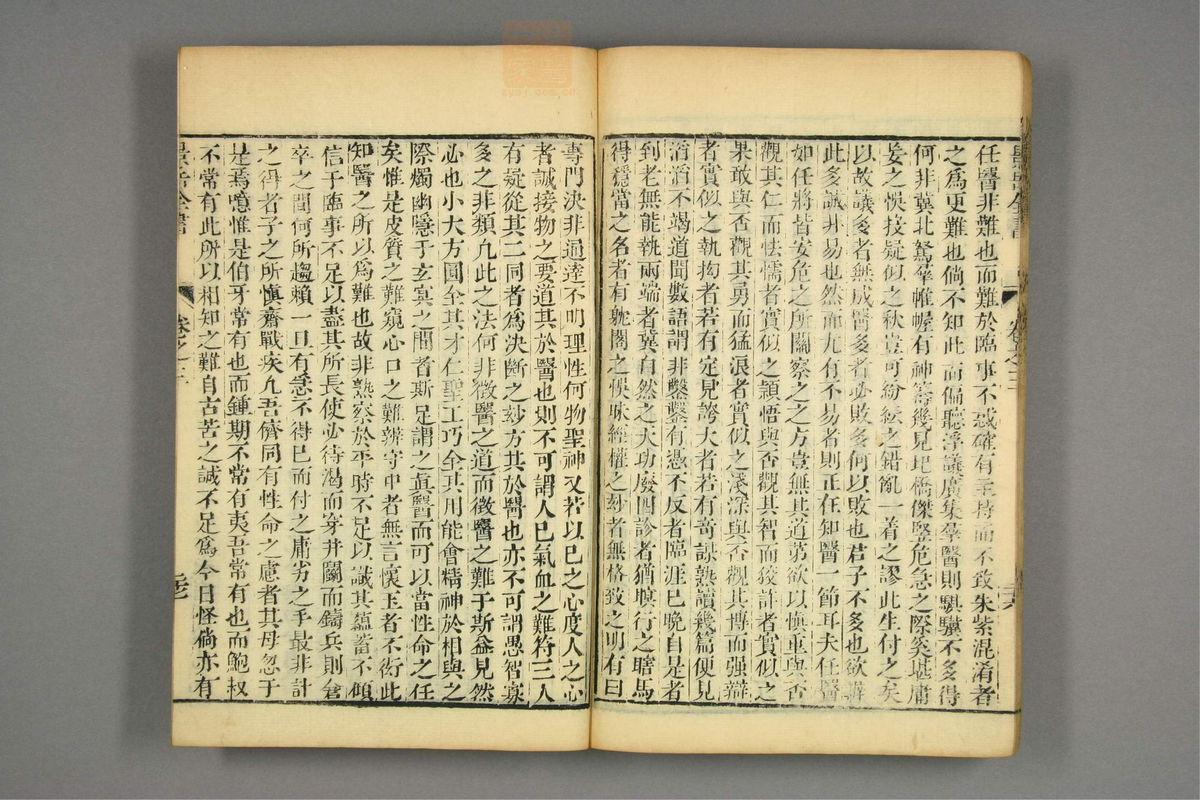 任醫非難也而難於臨事不惑確有主持而不致朱紫混淆者
之爲更難也倘不知此而偏聽浮議廣集羣醫則騏驥不多得
何非冀北駑羣帷幄有神籌幾見圯橋傑竪危急之際奚堪庸
妄之悞投疑似之秋豈可紛紜之錯亂一着之謬此生付之矣
以故議多者無成醫多者必敗多何以敗也君子不多也欲辨
此多誠非易也然而尤有不易者則正在知醫一節耳夫任醫
如任將皆安危之所關察之之方豈無其道第欲以慎重與否
觀其仁而怯懦者實似之頴悟與否觀其智而狡詐者實似之
果敢與否觀其勇而猛浪者實似之淺深與否觀其博而强辯
者實似之執拗者若有定見誇大者若有竒謀熟讀幾篇便見
滔滔不竭道聞數語謂非鑿鑿有憑不反者臨涯已晚自是者
到老無能執兩端者冀自然之天功廢四診者猶瞑行之瞎馬
得穩當之名者有躭閣之悞昧經權之玅者無格致之明有曰
景岳全書
卷之三
三六
專門決非通達不明理性何物聖神又若以己之心度人之心
者誠接物之要道其於醫也則不可謂人己氣血之難符三人
有疑從其二同者爲決斷之玅方其於醫也亦不可謂愚智寡
多之非類凢此之法何非徴醫之道而徴醫之難于斯益見然
必也小大方圓全其才仁聖工巧全其用能會精神於相與之
際燭幽隱于玄㝠之間者斯足謂之眞醫而可以當性命之任
矣惟是皮質之難窺心口之難辨守中者無言懷玉者不衒此
知醫之所以爲難也故非熟察於平時不足以識其蘊畜不傾
信于臨事不足以盡其所長使必待渴而穿井鬬而鑄兵則倉
卒之間何所趨賴一旦有急不得已而付之庸劣之手最非計
之得者子之所慎齋戰疾凢吾儕同有性命之慮者其毋忽于
是焉噫惟是伯牙常有也而鍾期不常有夷吾常有也而鮑叔
不常有此所以相知之難自古苦之誠不足爲今日怪倘亦有
景岳全書
卷之三
三七